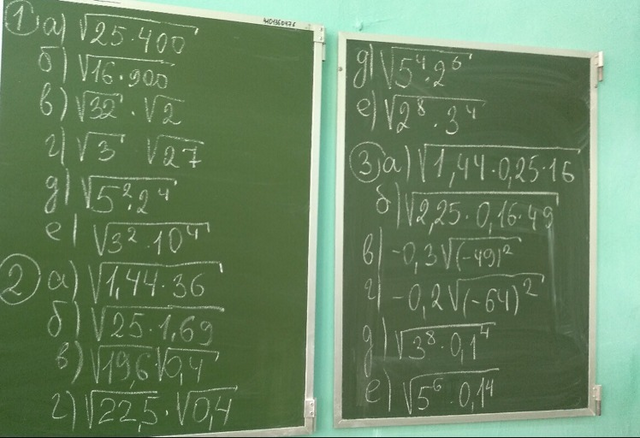 1) а) √25·400
б) √16·900
в) √32 · √2
г) √3 √27
д) √5²·2⁴
е) √3²·10⁴
2) а) √1,44·36
б) √25·1,69
в) √19,6 √0,4
г) √22,5·√0,4
д) √5⁴·2⁶
е) √2⁸·3⁴
3) а) √1,44·0,25·16
б) √2,25·0,16·49
в) -0,3√(-49)²
г) -0,2√(-64)²
д) √3⁸·0,1⁴
е) √5⁶·0,1⁴